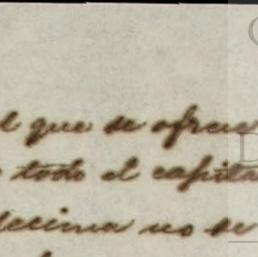 l que se ofrece
todo el capita
decima no se